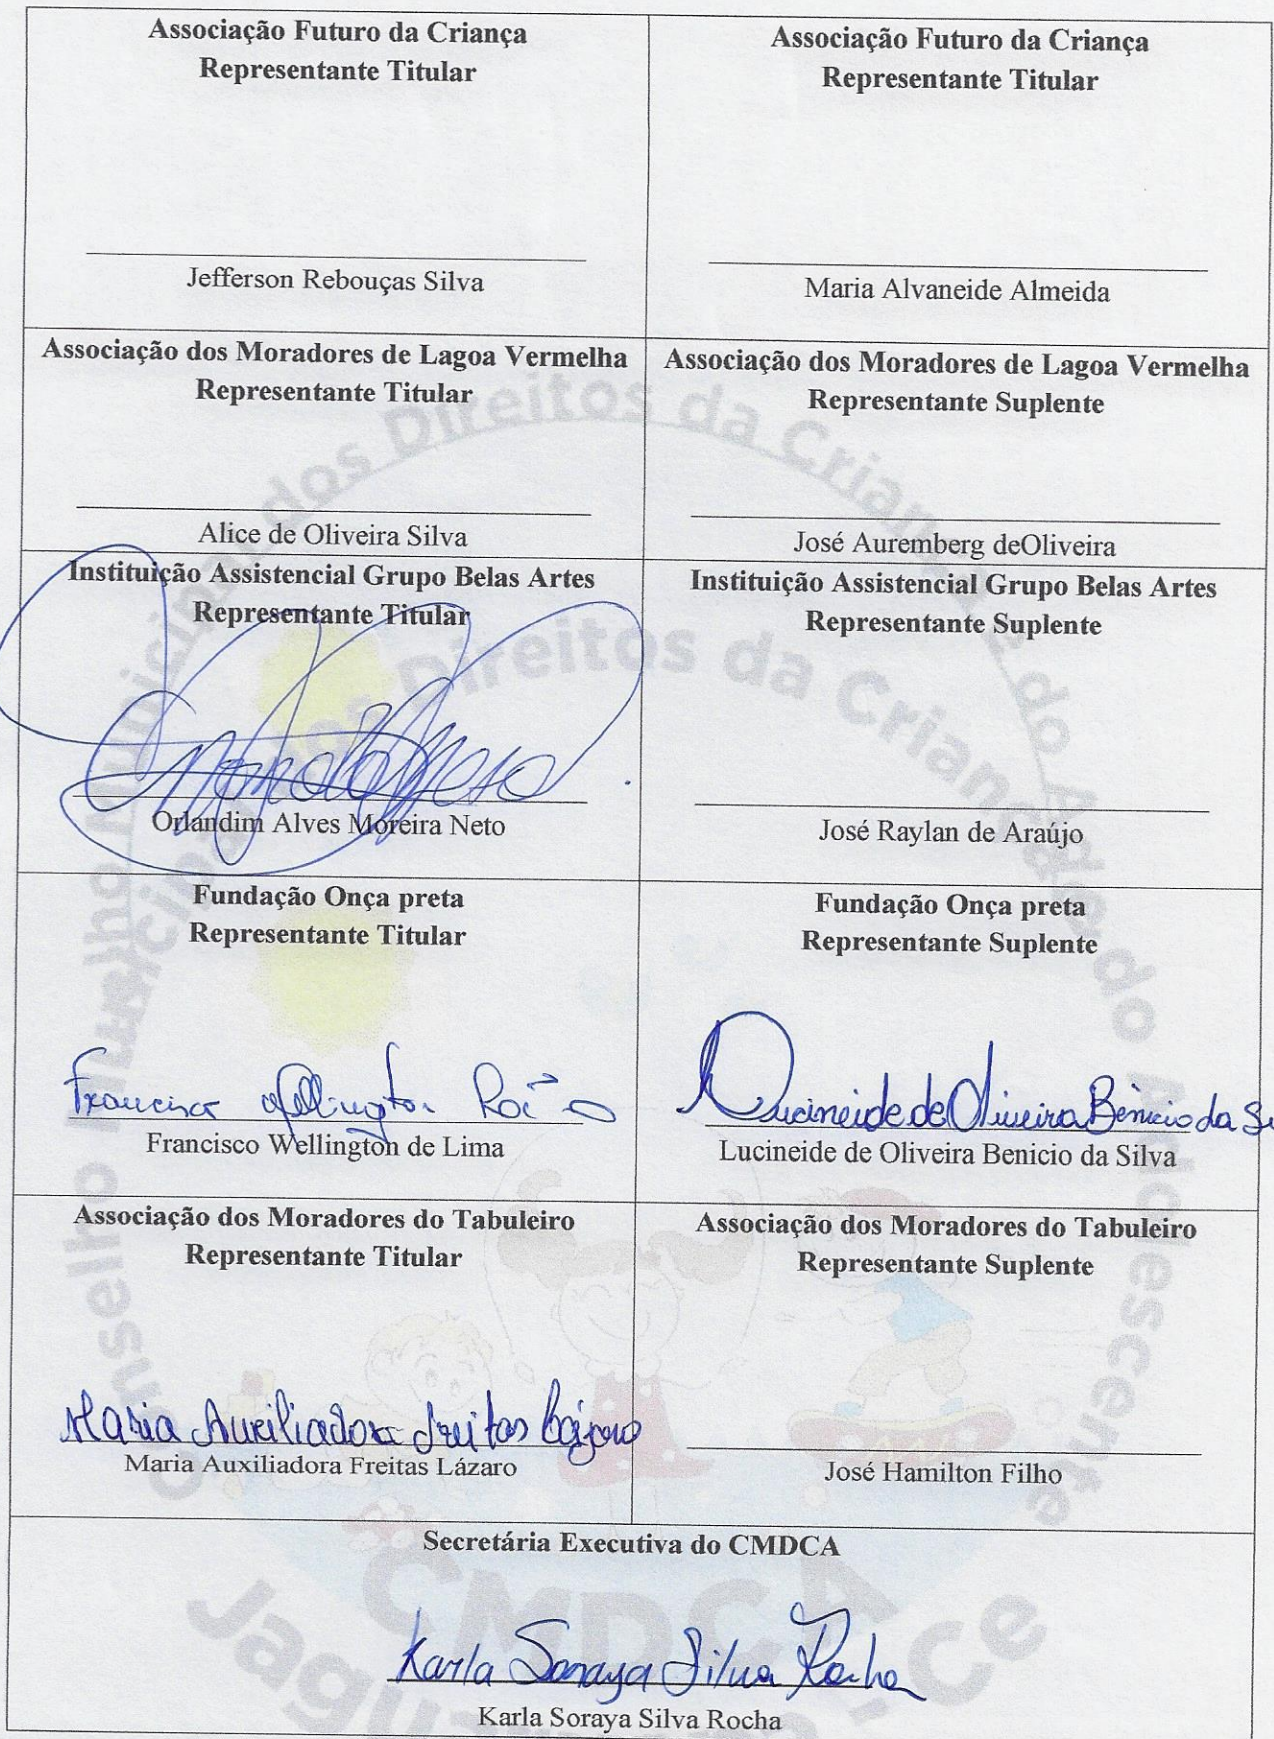 Associação Futuro da Criança
Representante Titular
Jefferson Rebouças Silva
Associação Futuro da Criança
Representante Titular
Maria Alvaneide Almeida
Associação dos Moradores de Lagoa Vermelha
Representante Titular
Alice de Oliveira Silva
Associação dos Moradores de Lagoa Vermelha
Representante Suplente
José Auremberg deOliveira
Instituição Assistencial Grupo Belas Artes
Representante Titular
Orlandim Alves Moreira Neto
Instituição Assistencial Grupo Belas Artes
Representante Suplente
José Raylan de Araújo
Fundação Onça preta
Representante Titular
Francisco Wellington
Francisco Wellington de Lima
Fundação Onça preta
Representante Suplente
Lucineide de Oliveira Benicio da
Lucineide de Oliveira Benicio da Silva
Associação dos Moradores do Tabuleiro
Representante Titular
Maria Auxiliadora Freitas Lázaro
Maria Auxiliadora Freitas Lázaro
Associação dos Moradores do Tabuleiro
Representante Suplente
José Hamilton Filho
Secretária Executiva do CMDCA
Karla Soraya Silva Rocha
Karla Soraya Silva Rocha
Conselho Municipal dos Direitos da Criança e do Adolescente
CMDCA